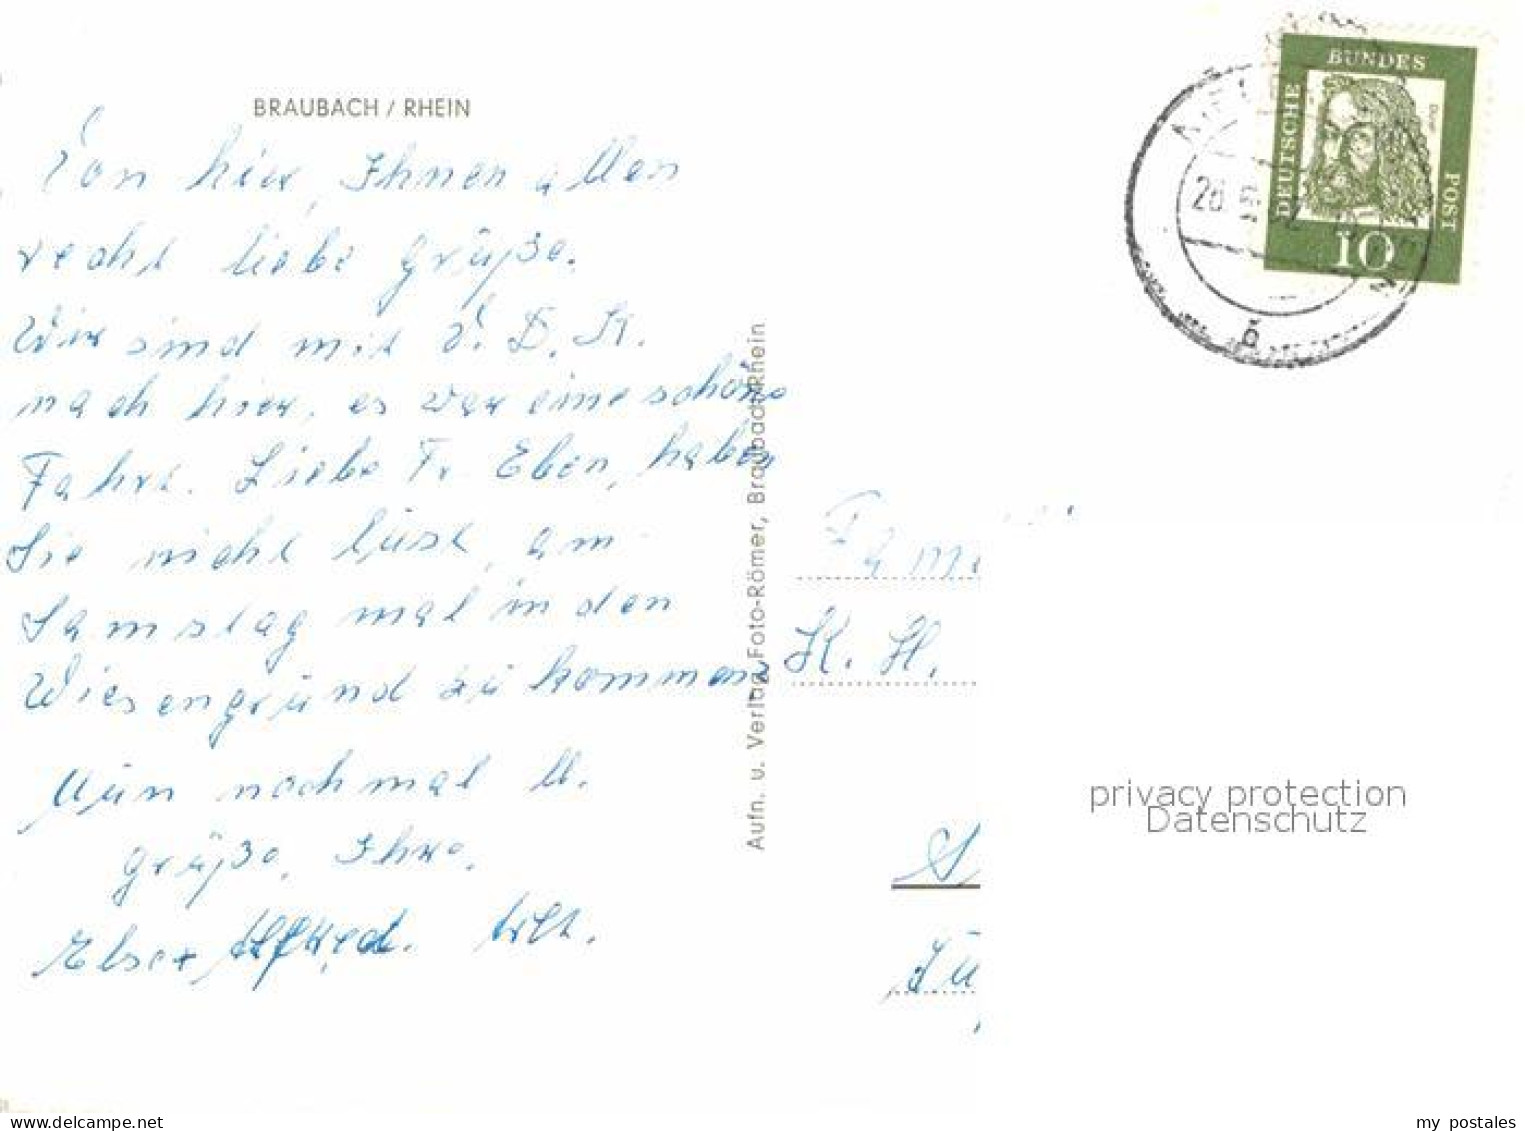 BRAUBACH / RHEIN
Von hier, Ihnen allen
recht liebe Grüße.
Wir sind mit V. D. K.
nach hier, es war eine schöne
Fahrt. Liebe Fr. Eben, haben
Sie nicht Lust, am
Samstag mal in den
Wiesengrund zu kommen
Nun nochmal U.
Grüße, Ihre,
Else + Alfred.
Aufn. u. Verlag Foto-Römer, Braubach/Rhein
DEUTSCHE
BUNDES
POST
Dürer
10
26.
b
Fami
K. H.
privacy protection
Datenschutz
my postales